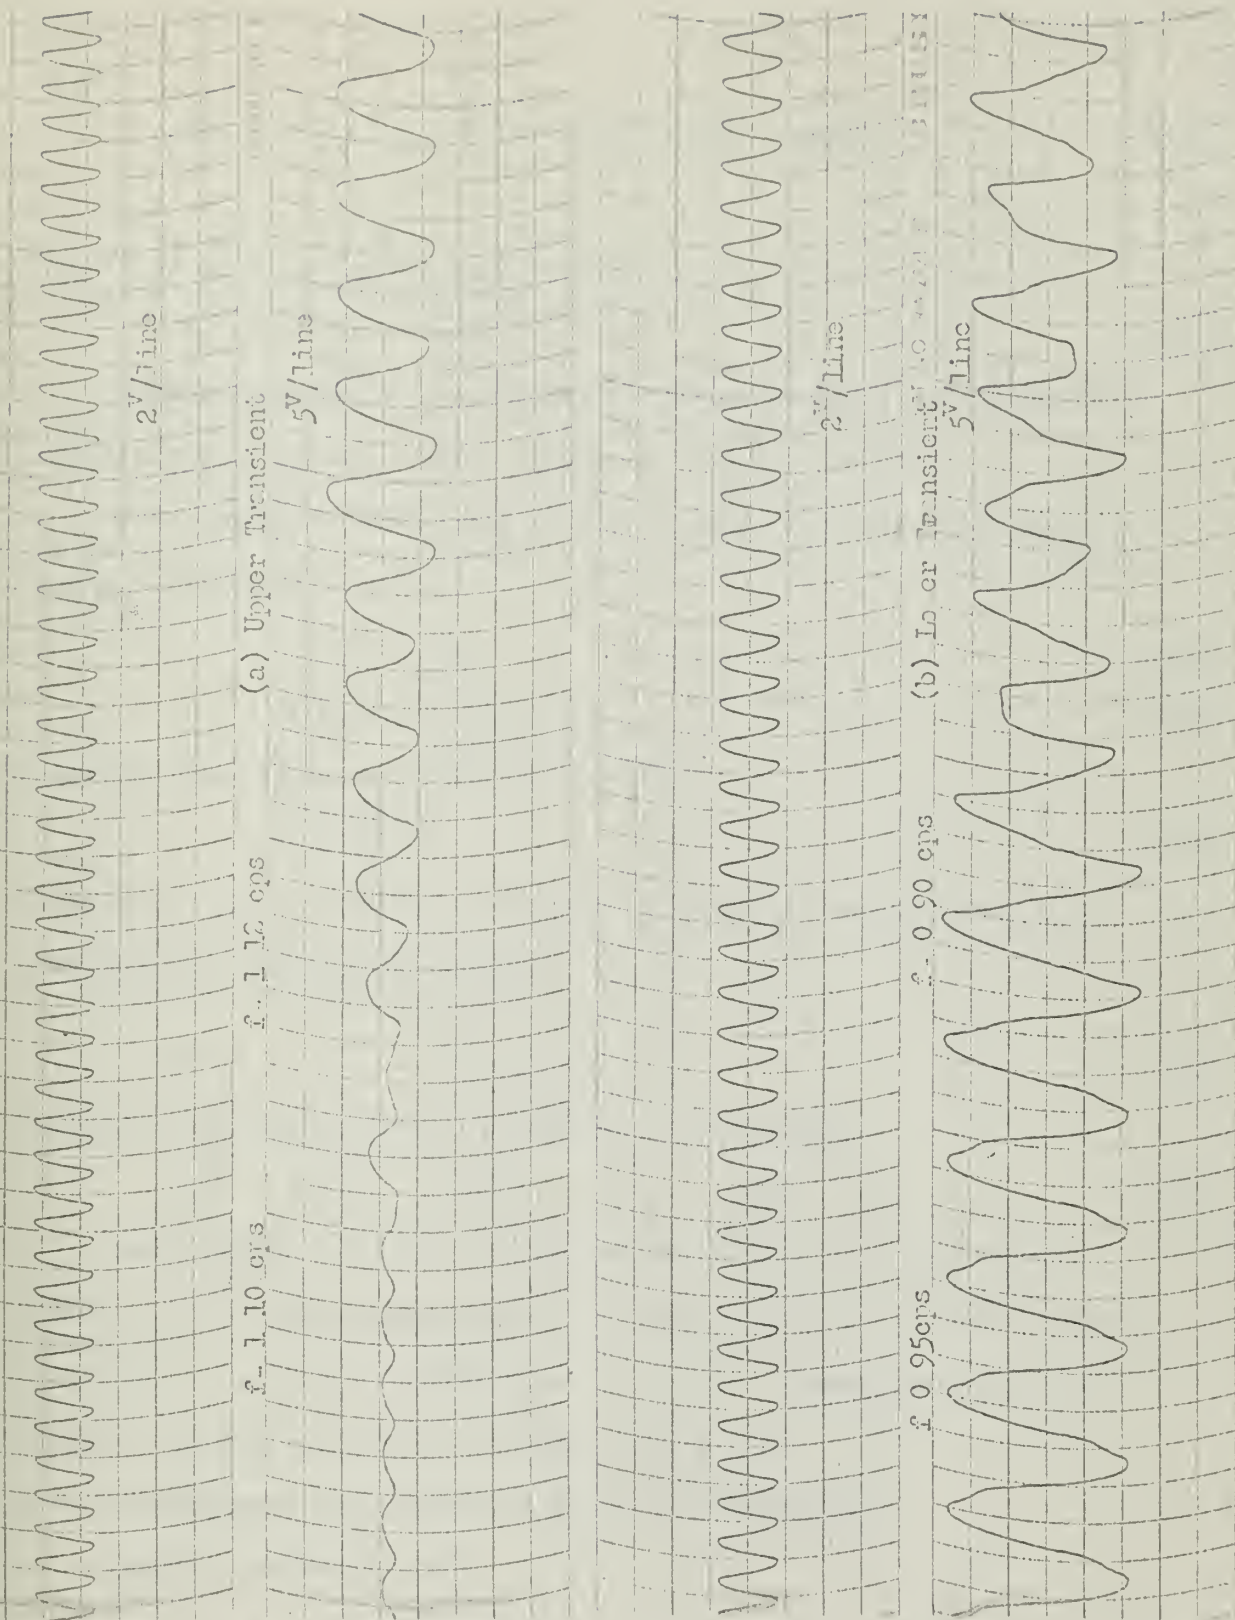 2V/line
f- 1 10 cps f. 1 12 cps (a) Upper Transient
5V/line
2V/line
f 0 95cps f- 0 90 cps (b) Lo er Transient
5V/line